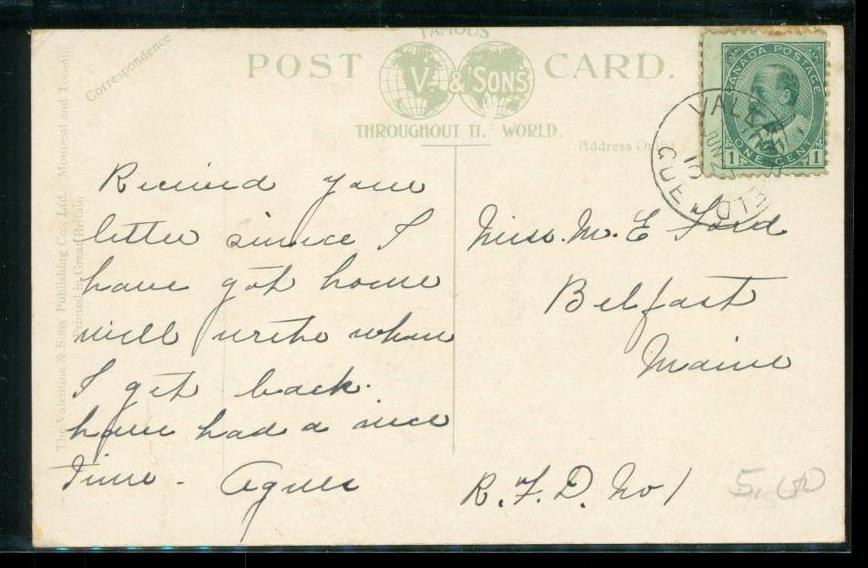 FAMOUS
POST CARD.
V. & SONS
THROUGHOUT TH. WORLD.
Correspondence
Address Only
The Valentine & Sons' Publishing Co., Ltd. Montreal and Toronto.
Printed in Great Britain
CANADA POSTAGE
1 ONE CENT 1
JUN 27
10
QUE
Received your
letter since I
have got home
will write when
I get back.
have had a nice
time - Agnes
Miss. M. E Ford
Belfast
Maine
R. F. D. No 1
5.00